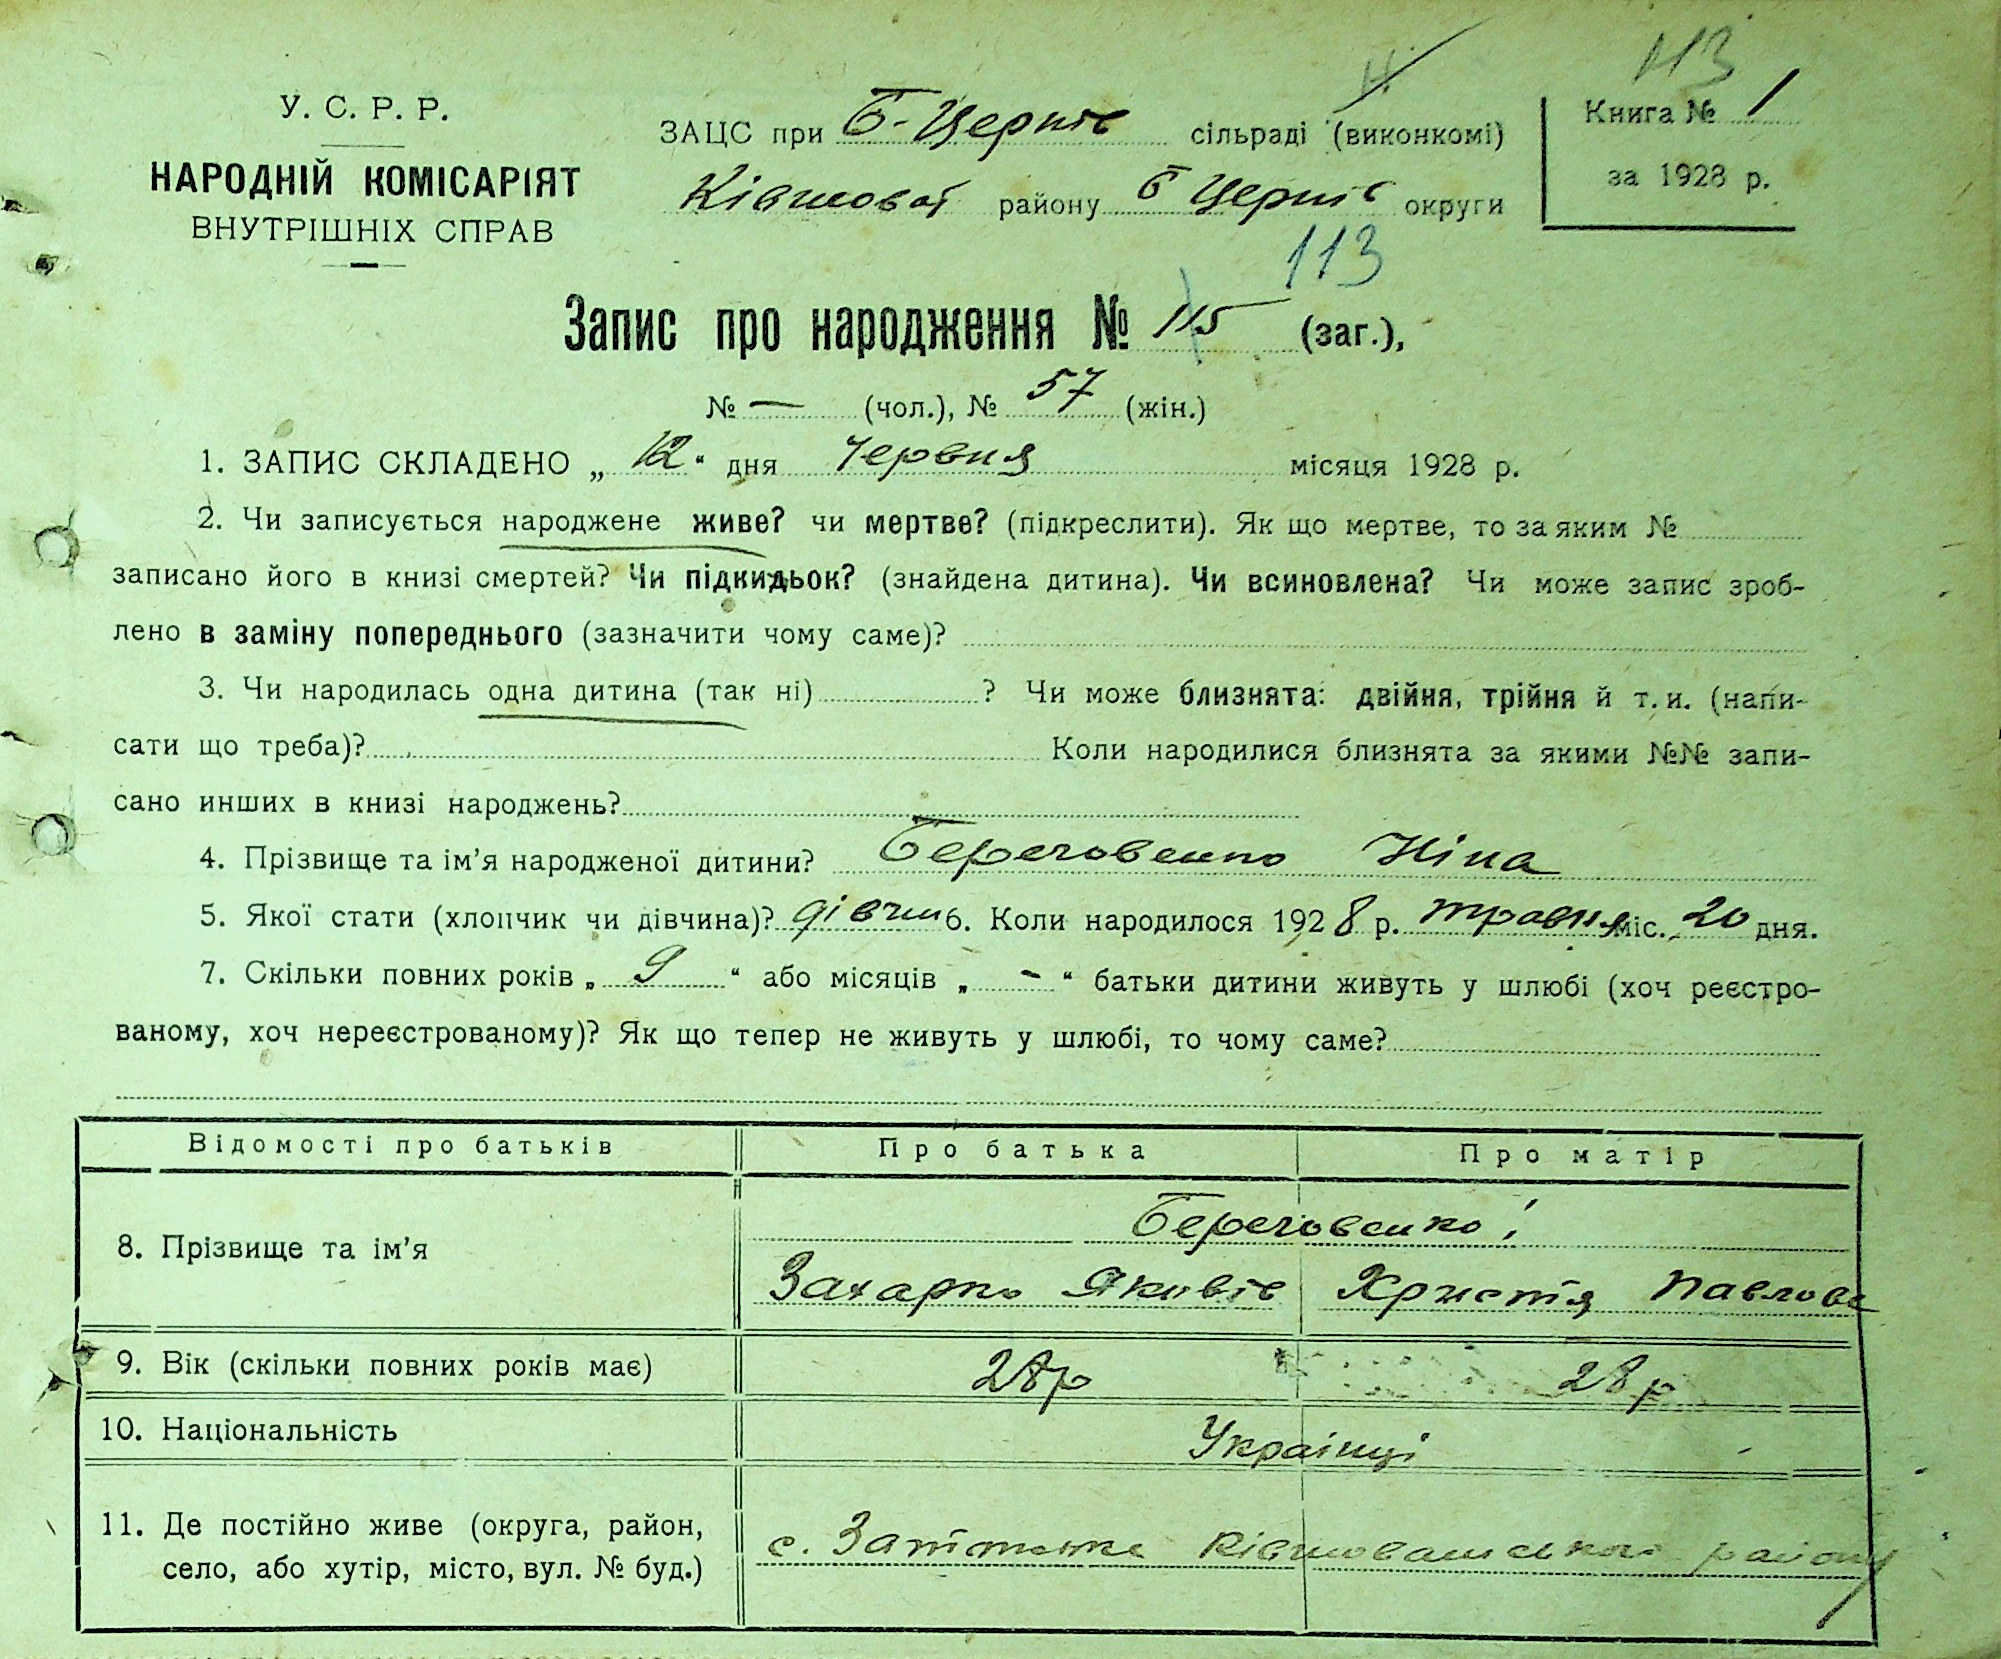 113
У. С. Р. Р.
НАРОДНІЙ КОМІСАРІЯТ
ВНУТРІШНІХ СПРАВ
ЗАЦС при Б-Церків сільраді (виконкомі)
района Б Церків округи
Книга № 1
за 1928 р.
113
Запис про народження № 115 (заг.),
№ — (чол.), № 57 (жін.)
1. ЗАПИС СКЛАДЕНО „ 12 “ дня Червня місяця 1928 р.
2. Чи записується народжене живе? чи мертве? (підкреслити). Як що мертве, то за яким №
записано його в книзі смертей? Чи підкидьок? (знайдена дитина). Чи всиновлена? Чи може запис зроб-
лено в заміну попереднього (зазначити чому саме)?
3. Чи народилась одна дитина (так ні) ? Чи може близнята: двійня, трійня й т. и. (напи-
сати що треба)? Коли народилися близнята за якими №№ запи-
сано инших в книзі народжень?
4. Прізвище та ім’я народженої дитини? Береговенко Ніна
5. Якої стати (хлопчик чи дівчина)? дівчин 6. Коли народилося 1928 р. травня міс. 20 дня.
7. Скільки повних років „ 9 “ або місяців „ - “ батьки дитини живуть у шлюбі (хоч реєстро-
ваному, хоч нереєстрованому)? Як що тепер не живуть у шлюбі, то чому саме?
Відомості про батьків Про батька Про матір
8. Прізвище та ім’я Береговенко
Захарко Яковів Христя Павлова
9. Вік (скільки повних років має) 28р 28р
10. Національність Українці
11. Де постійно живе (округа, район,
село, або хутір, місто, вул. № буд.) с. району